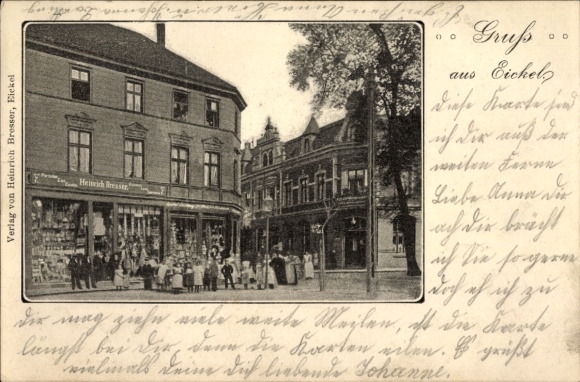 Gruß
aus Eickel
Verlag von Heinrich Bresser, Eickel
Heinrich Bresser
Diese Karte send
ich dir auß der
weiten Ferne
Liebe Anna dir
ach dir brächt
ich Sie so gerne
Doch eh ich zu
dir mag ziehn viele weite Meilen, ist die Karte
längst bei Dir, denn die Karten eilen. Es grüßt
vielmals deine Dich liebende Johanne.